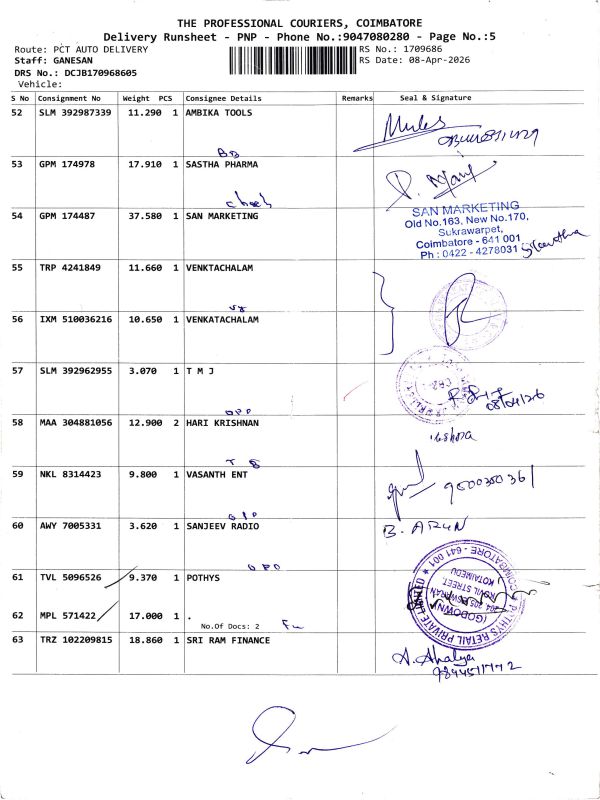 THE PROFESSIONAL COURIERS, COIMBATORE
Delivery Runsheet - PNP - Phone No.:9047080280 - Page No.:5
Route: PCT AUTO DELIVERY RS No.: 1709686
Staff: GANESAN RS Date: 08-Apr-2026
DRS No.: DCJB170968605
Vehicle:
S No Consignment No Weight PCS Consignee Details Remarks Seal & Signature
52 SLM 392987339 11.290 1 AMBIKA TOOLS
53 GPM 174978 17.910 1 SASTHA PHARMA
54 GPM 174487 37.580 1 SAN MARKETING
SAN MARKETING
Old No.163, New No.170,
Sukrawarpet,
Coimbatore - 641 001
Ph : 0422 - 4278031
55 TRP 4241849 11.660 1 VENKTACHALAM
56 IXM 510036216 10.650 1 VENKATACHALAM
57 SLM 392962955 3.070 1 T M J
08/04/26
58 MAA 304881056 12.900 2 HARI KRISHNAN
59 NKL 8314423 9.800 1 VASANTH ENT
60 AWY 7005331 3.620 1 SANJEEV RADIO
B. ARUN
61 TVL 5096526 9.370 1 POTHYS
62 MPL 571422 17.000 1 .
No.Of Docs: 2
63 TRZ 102209815 18.860 1 SRI RAM FINANCE
A. Ahalya
9894511772